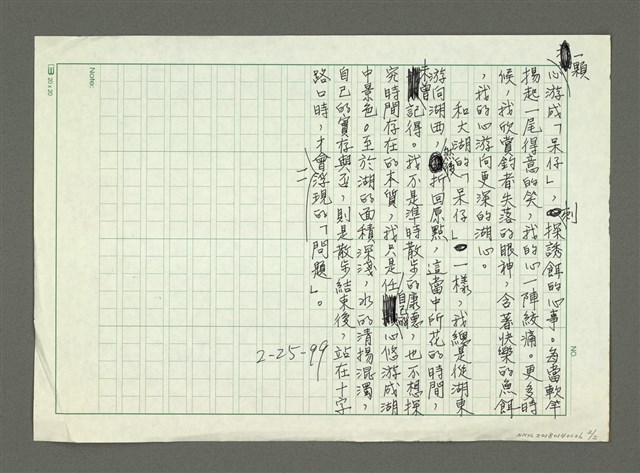 一顆
心游成「呆仔」，刻探誘餌的心事。每當軟竿
揚起一尾得意的笑，我的心一陣絞痛。更多時
候，我欣賞釣者失落的眼神，含著快樂的魚餌
，我的心游向更深的湖心。
和大湖的「呆仔」一樣，我總是從湖東
游向湖西，然後折回原點，這當中所花的時間，
未曾記得。我不是準時散步的康德，也不想探
究時間存在的本質，我只是任自己的心悠游成湖
中景色。至於湖的面積深淺，水的清揚混濁，
自己的實存與否，則是散步結束後，站在十字
路口時，才會浮現的「問題」。
2-25-99
Note:
20 x 20
NO.
2/2